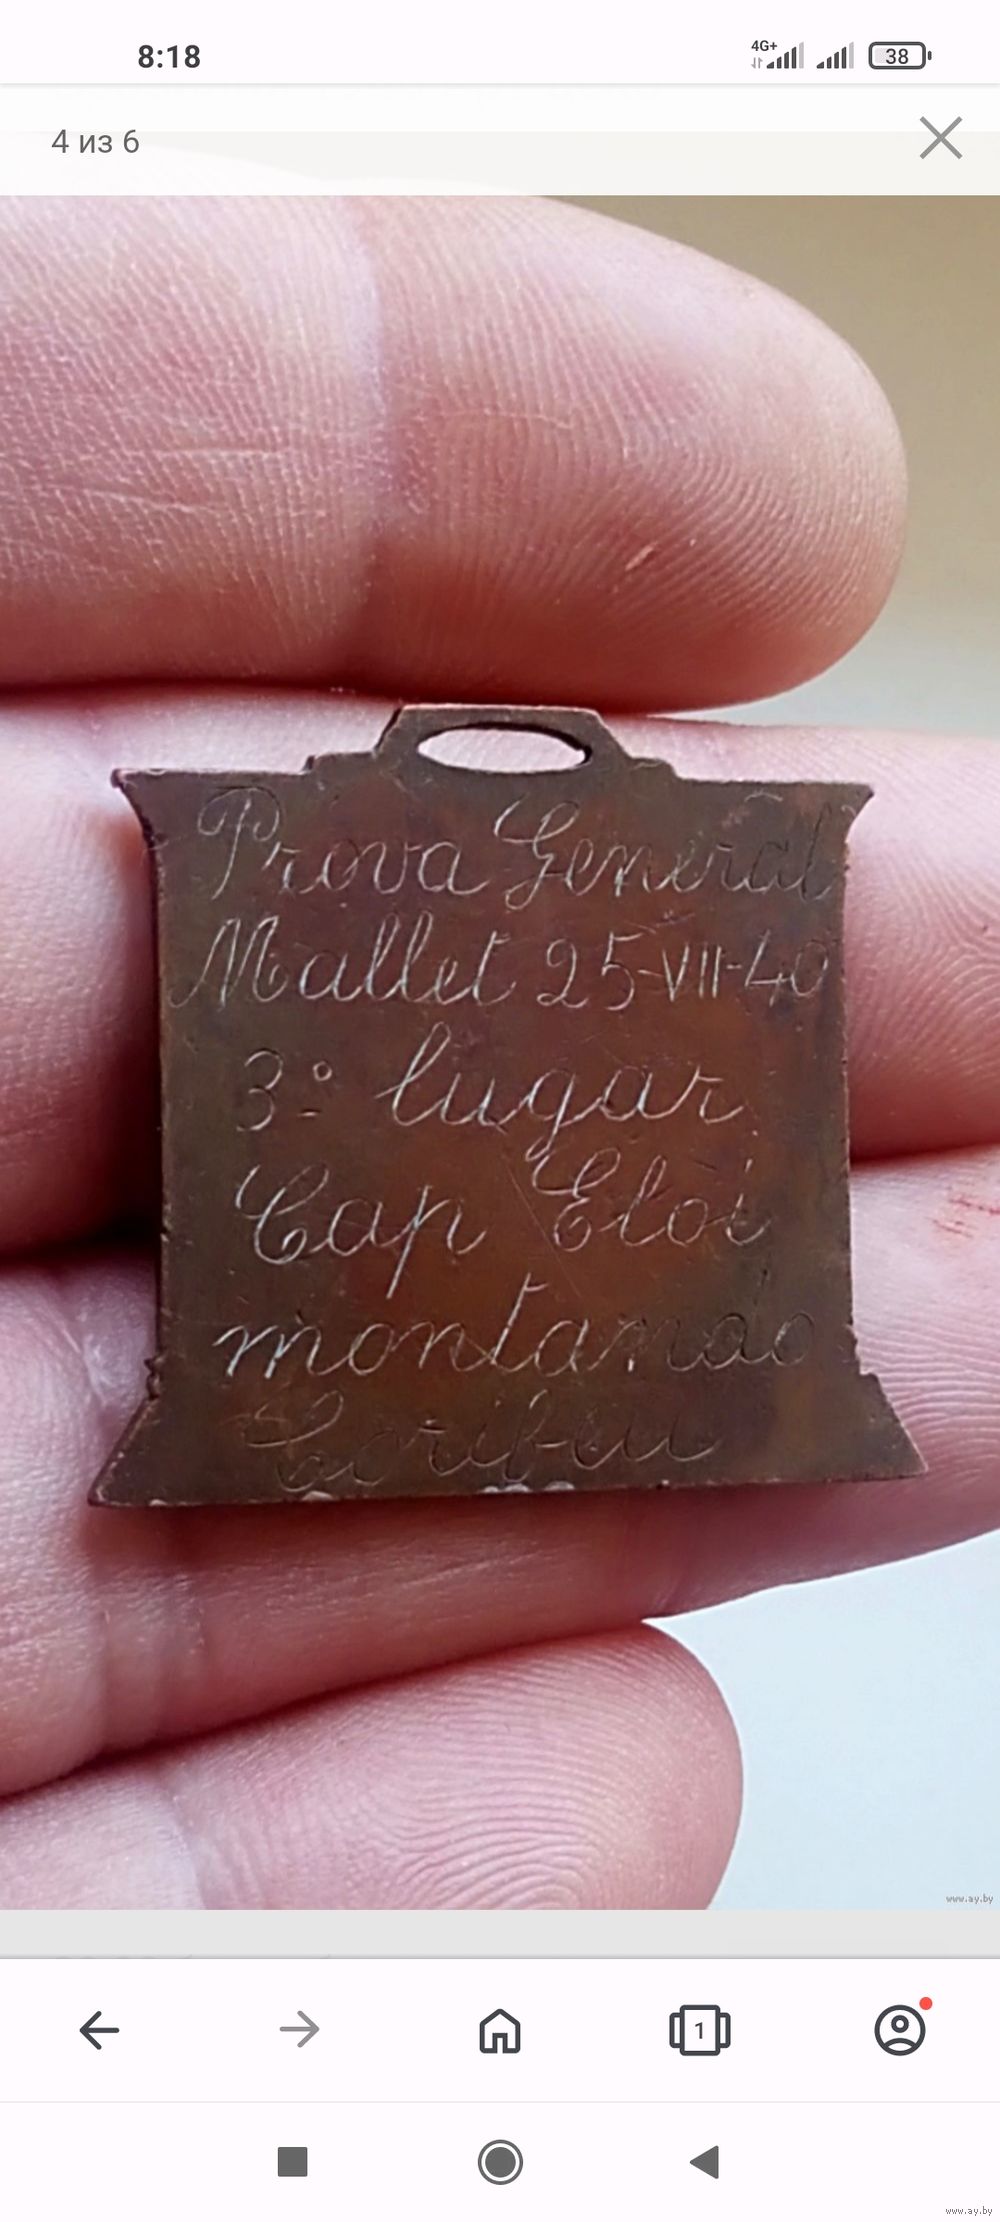 8:18
4G+
38
4 из 6
Prova General
Mallet 25-VII-40
3º lugar
Cap Elói
montando
www.ay.by
1
www.ay.by